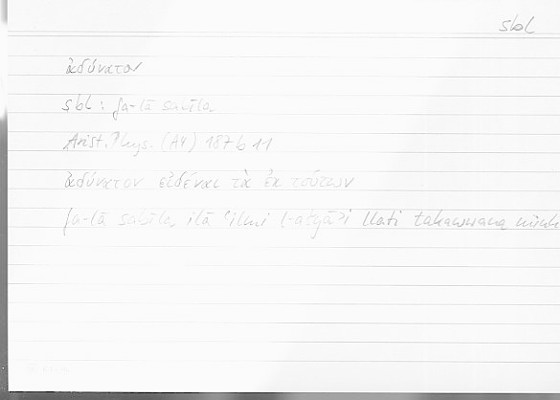 sbl
ἀδύνατον
sbl: fa-lā sabīla
Arist. Phys. (A4) 187 b 11
ἀδύνατον εἰδέναι τὰ ἐκ τούτων
fa-lā sabīla ilā ʿilmi l-ašyāʾi llati takawwana